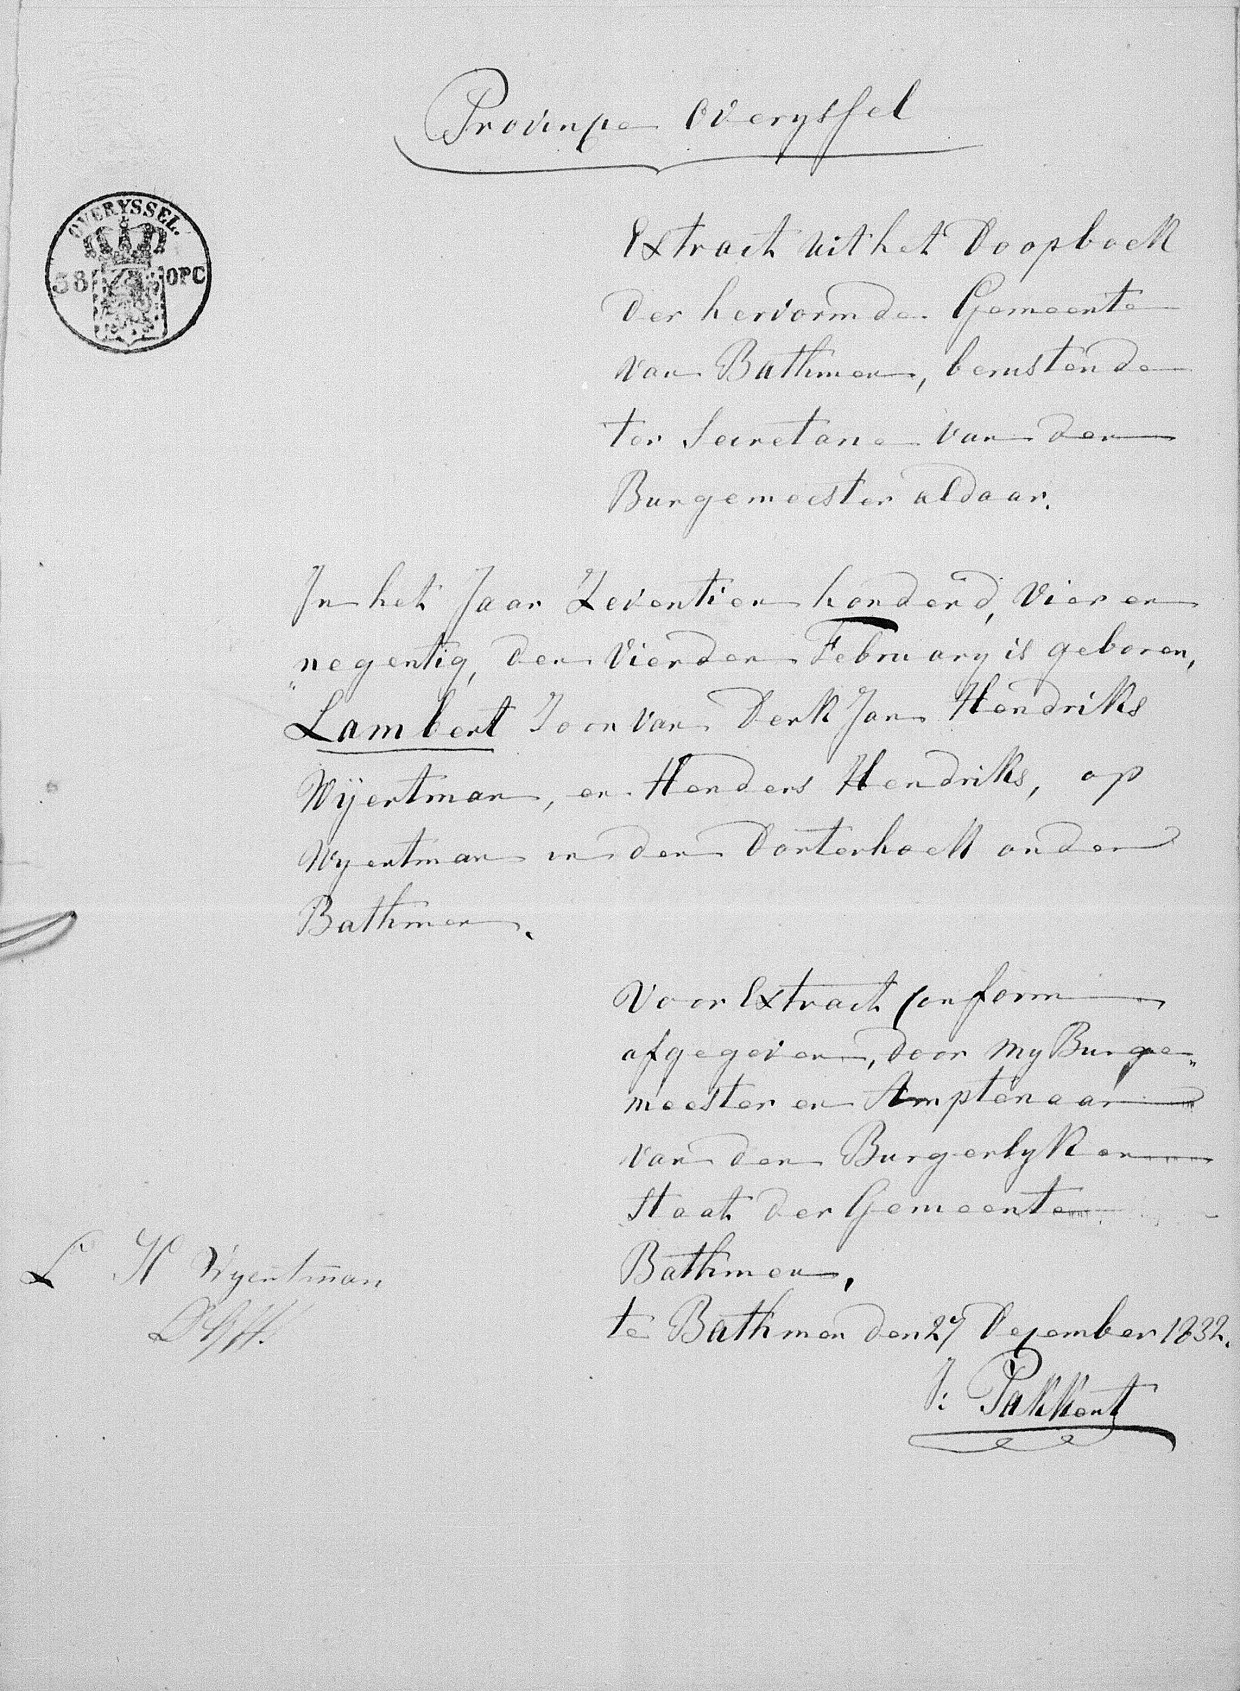 Provincie Overyssel
OVERYSSEL.
38 OPC
Extract uit het Doopboek
der hervormde Gemeente
van Bathmen, berustende
ter Secretarie van den
Burgemeester aldaar.
In het Jaar Zeventien honderd, Vier en
negentig, den Vierden February is geboren,
Lambert Zoon van Derk Jan Hendriks
Wijertman, en Henders Hendriks, op
Wyertman in den Dorterhoek onder
Bathmen.
Voor Extract conform
afgegeven, door my Burge„
meester en Amptenaar
van den Burgerlyken
Staat der Gemeente
Bathmen,
te Bathmen den 27 December 1832.
J: Pakkert
L H Wyertman